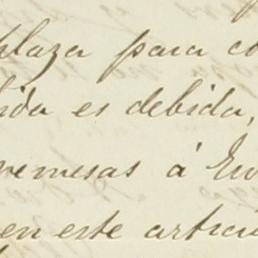 plaza para co
ida es debida,
remesas á Eu
en este artícu